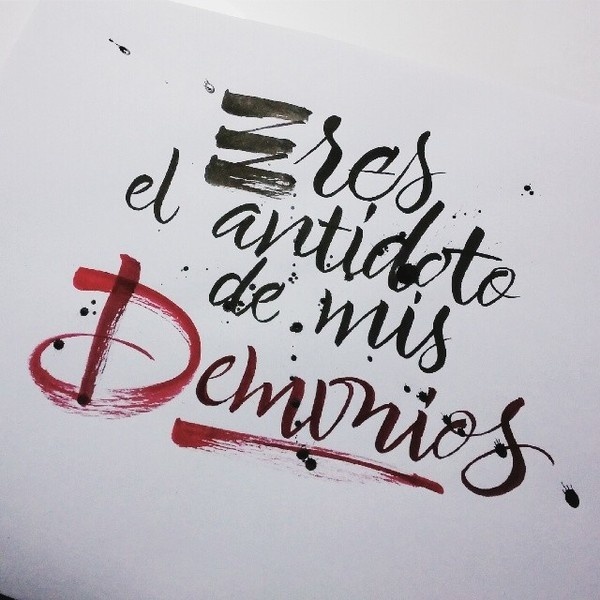 Eres
el antidoto
de mis
Demonios